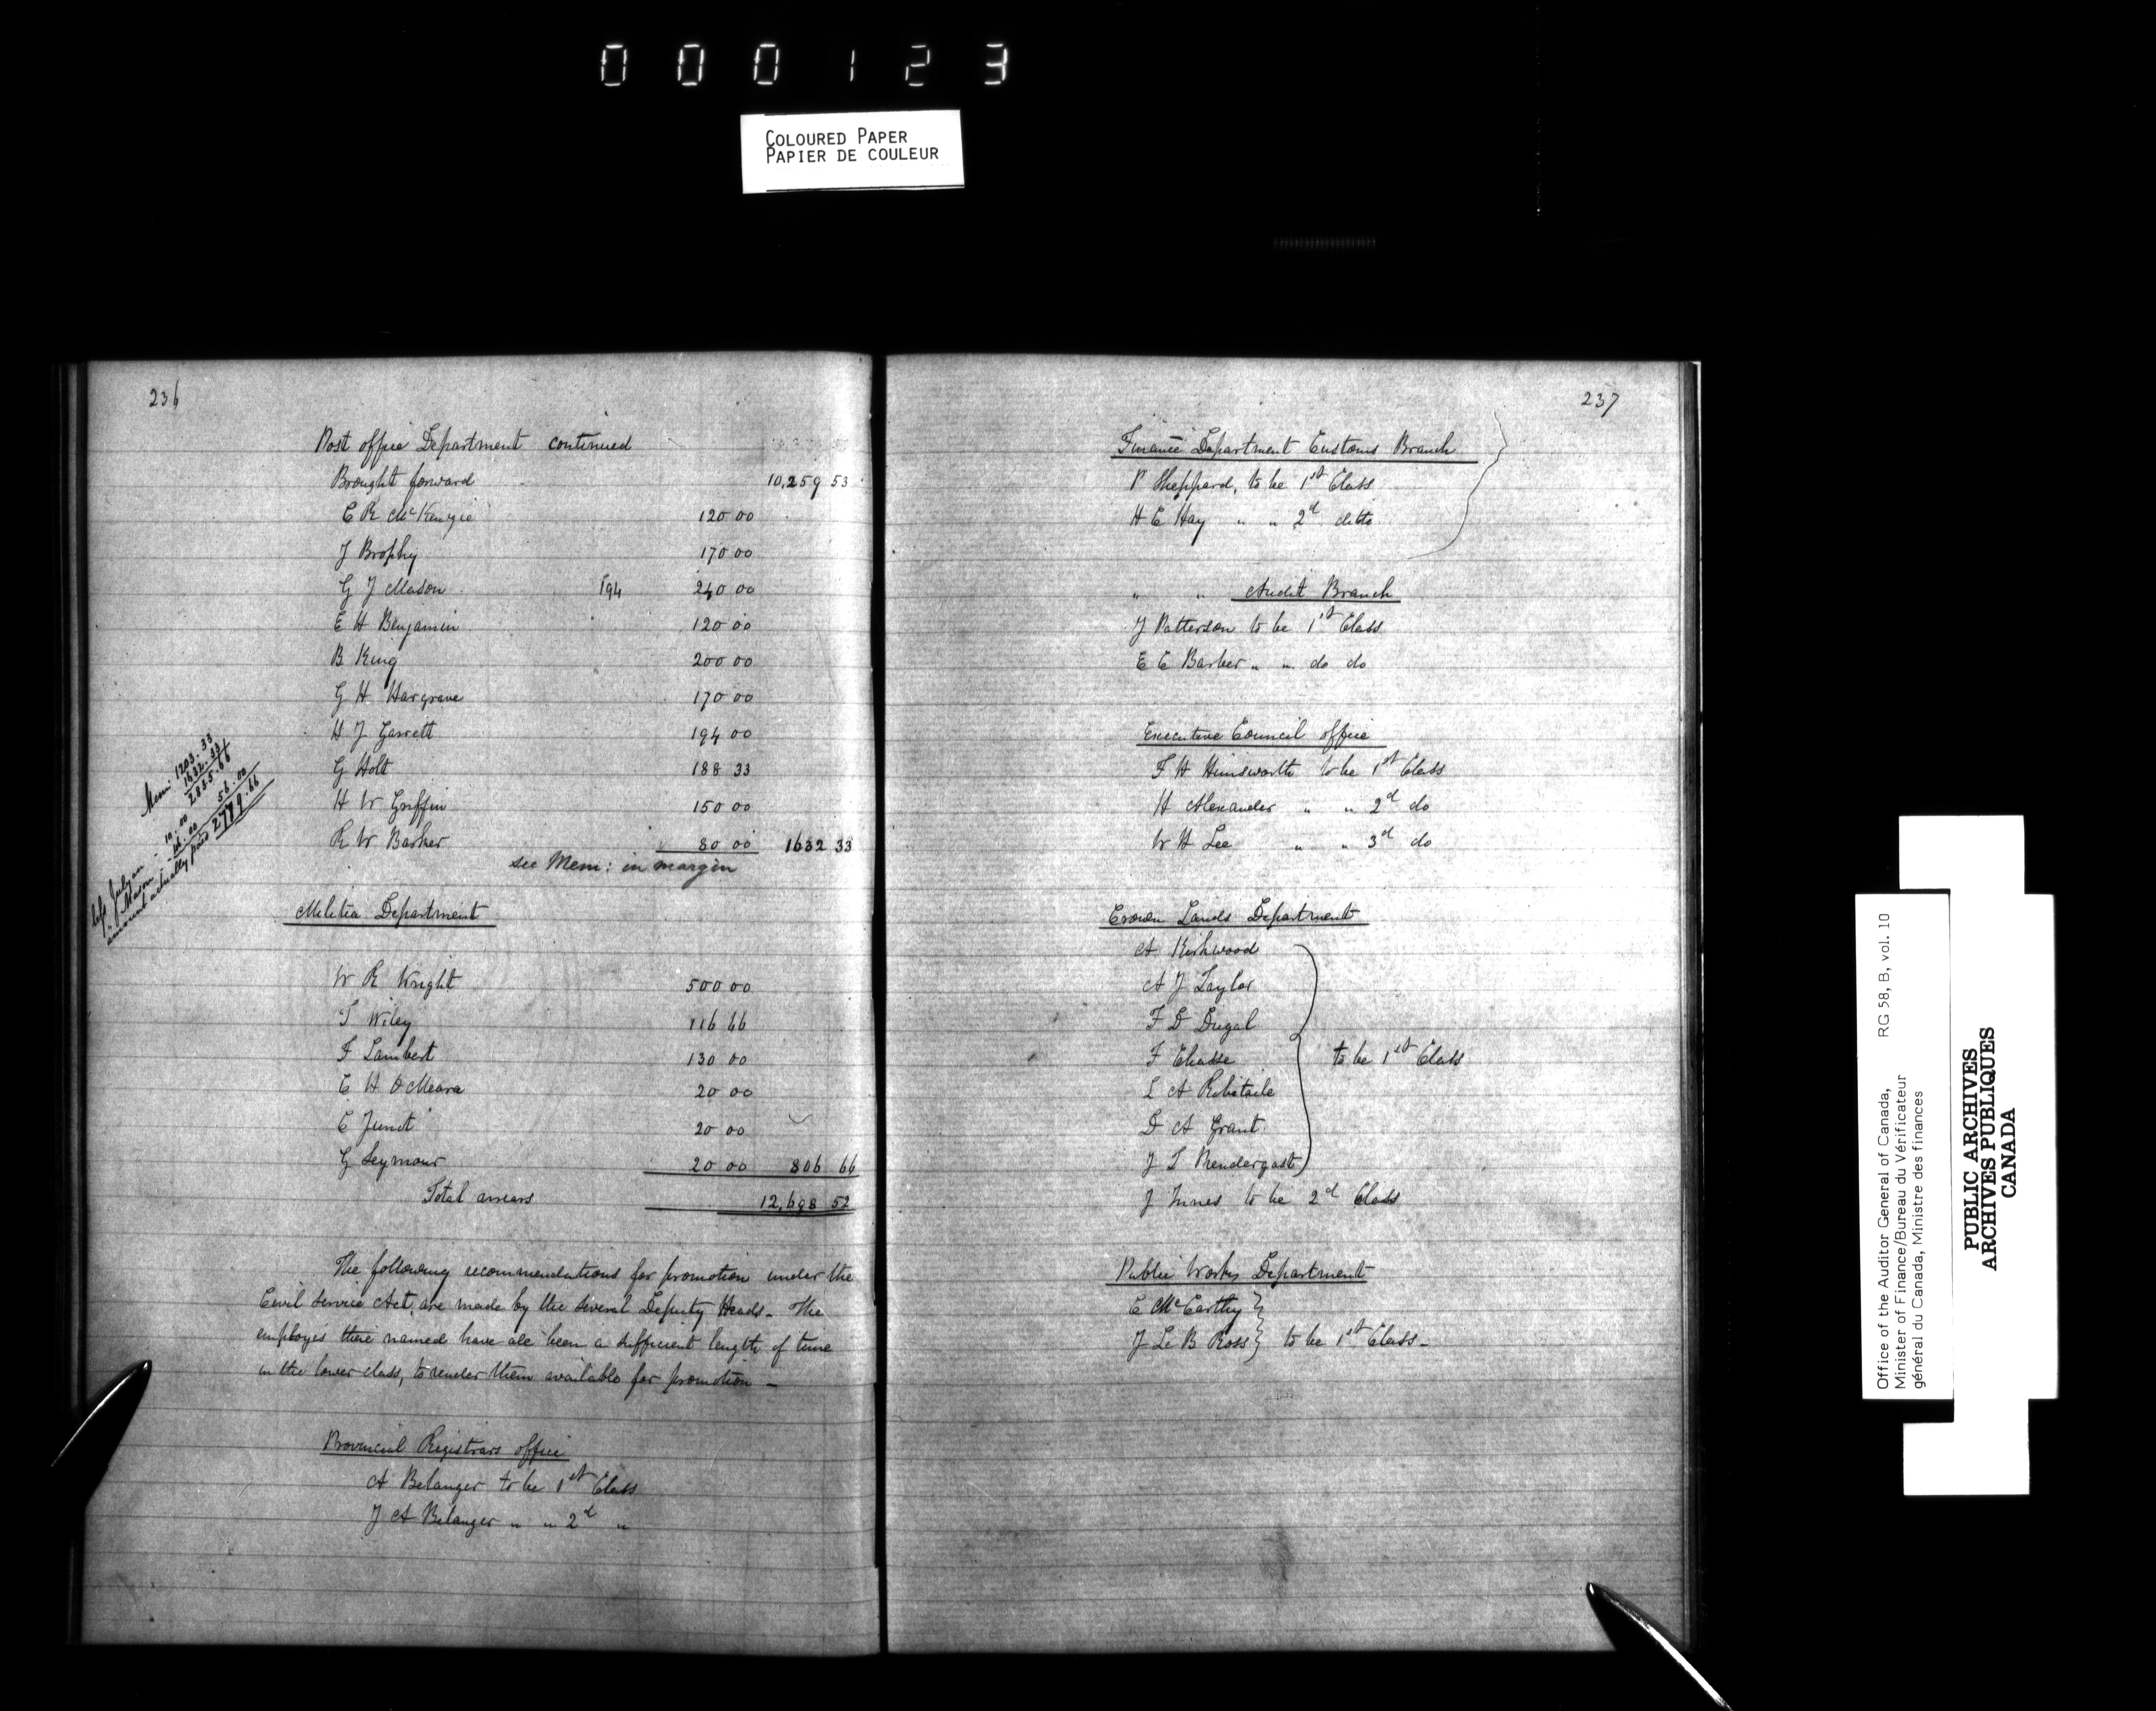 000123
COLOURED PAPER
PAPIER DE COULEUR
236
Post office Department continued
Brought forward 10,259 53
C R McKenzie 120 00
J Brophy 170 00
G J Mason 194 240 00
E H Benjamin 120 00
B King 200 00
G H Hargrave 170 00
H J Garrett 194 00
G Holt 188 33
H W Griffin 150 00
R W Barker 80 00 1632 33
see Mem: in margin
Mem: 1203.33
1632.33
2835.66
Julyan 10.00
" Mason 46.00 56.00
amount actually paid 2779.66
Militia Department
W R Wright 500 00
T Wiley 116 66
F Lambert 130 00
C H O'Meara 20 00
C Junot 20 00
G Seymour 20 00 806 66
Total arrears 12,698 52
The following recommendations for promotion under the
Civil Service Act, are made by the several Deputy Heads - The
employés there named have all been a sufficient length of time
in the lower class, to render them available for promotion -
Provincial Registrars office
A Belanger to be 1st Class
J A Belanger " " 2d "
237
Finance Department Customs Branch
P Sheppard, to be 1st Class
H E Hay " " 2d ditto
" " Audit Branch
J Patterson to be 1st Class
E C Barber " " do do
Executive Council office
F H Himsworth to be 1st Class
H Alexander " " 2d do
W H Lee " " 3d do
Crown Lands Department
A Kirkwood
A J Taylor
F D Dugal
F Chasse to be 1st Class
L A Robitaile
D A Grant
J L Prendergast
J Innes to be 2d Class
Public Works Department
C McCarthy
J Le B Ross to be 1st Class -
Office of the Auditor General of Canada, RG 58, B, vol. 10
Minister of Finance/Bureau du Vérificateur
général du Canada, Ministre des finances
PUBLIC ARCHIVES
ARCHIVES PUBLIQUES
CANADA